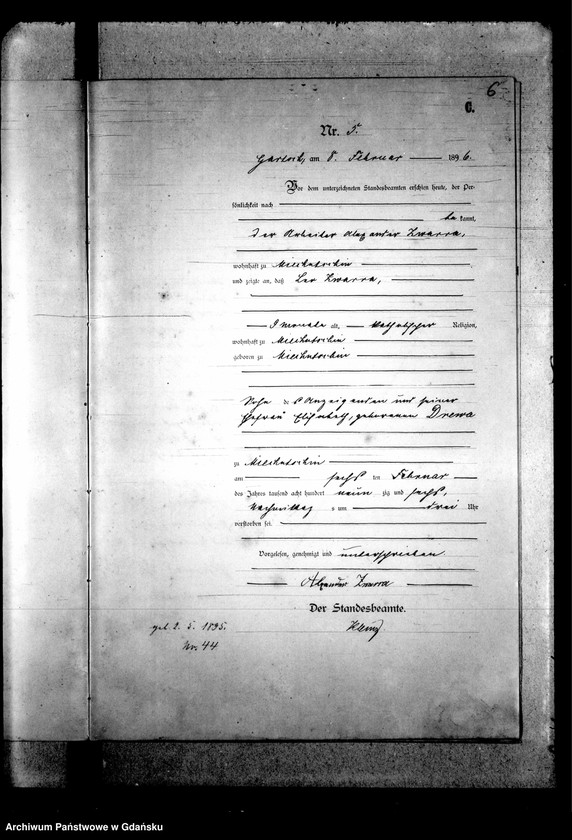 6
C.
Nr. 5.
am 8. Februar 1896.
Vor dem unterzeichneten Standesbeamten erschien heute, der Per-
sönlichkeit nach
be kannt,
der Arbeiter Alexander Zwarra,
wohnhaft zu
und zeigte an, daß Leo Zwarra,
9 Monate alt, katholischer Religion,
wohnhaft zu
geboren zu
Sohn des Anzeigenden und seiner
Ehefrau Elisabeth, geborenen Drewa
zu
am sechs ten Februar
des Jahres tausend acht hundert neun zig und sechs,
Nachmittags um drei Uhr
verstorben sei.
Vorgelesen, genehmigt und unterschrieben
Alexander Zwarra
Der Standesbeamte.
geb. 2. 5. 1895.
Nr. 44
Archiwum Państwowe w Gdańsku